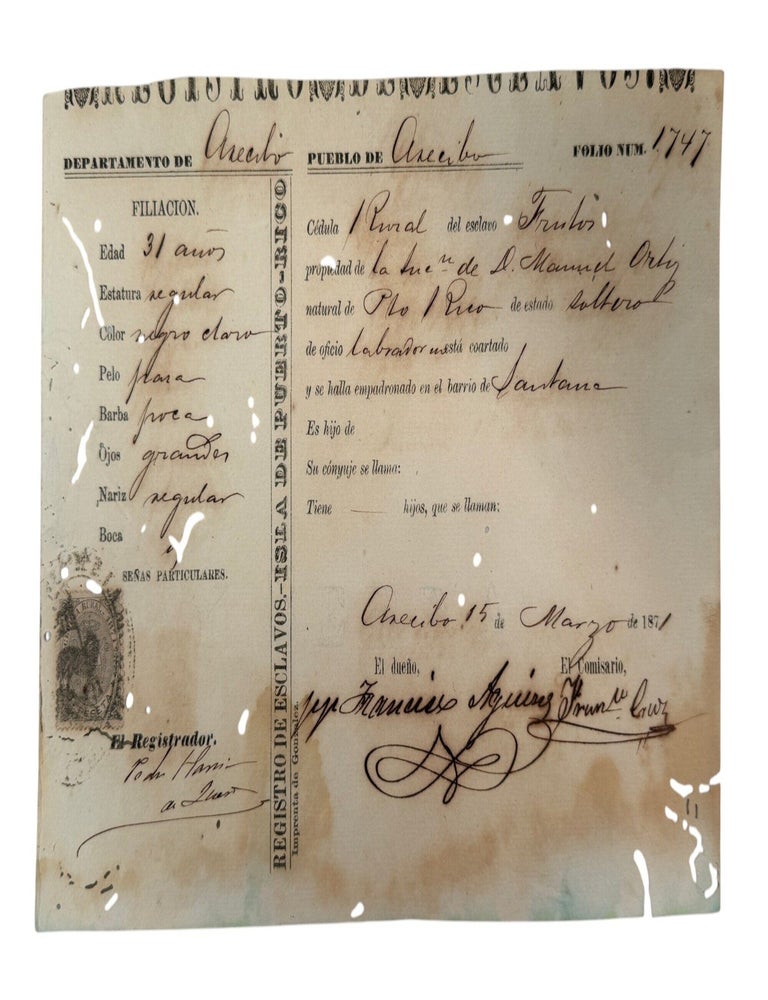 REGISTRO DE ESCLAVOS
DEPARTAMENTO DE Arecibo PUEBLO DE Arecibo FOLIO NUM. 1747
FILIACION.
Edad 31 años
Estatura regular
Color negro claro
Pelo pasa
Barba poca
Ojos grandes
Nariz regular
Boca
SEÑAS PARTICULARES.
El Registrador.
REGISTRO DE ESCLAVOS.-ISLA DE PUERTO-RICO
Imprenta de Gonzalez.
Cédula Rural del esclavo Frutos
propiedad de la suc.n de D. Manuel Ortiz
natural de Pto Rico de estado soltero
de oficio labrador está coartado
y se halla empadronado en el barrio de Santana
Es hijo de
Su cónyuje se llama:
Tiene — hijos, que se llaman:
Arecibo 15 de Marzo de 1871
El dueño, El Comisario,
Cruz